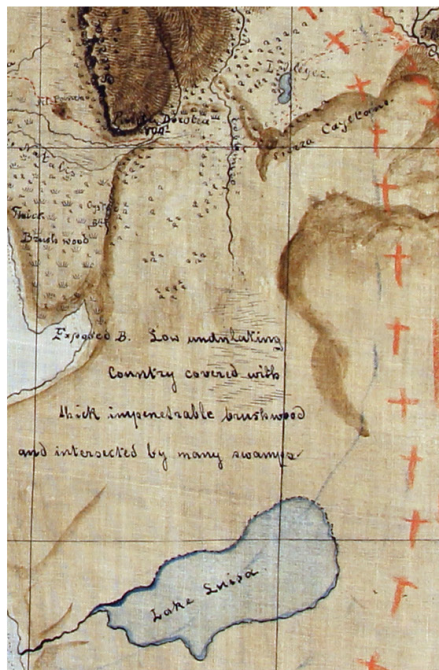 I. Diegez
Sierra Cayetano
R. Natales
Thick
Brushwood
Exposed B. Low undulating
Country covered with
thick impenetrable brushwood
and intersected by many swamps
Lake Luisa